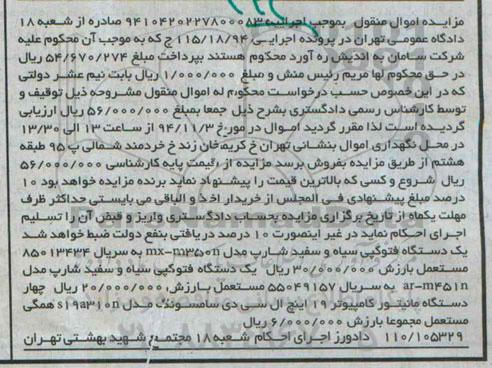 مزایده اموال منقول بموجب اجرائیه ۹۴۱۰۴۲۰۲۲۷۸۰۰۰۸۳ صادره از شعبه ۱۸
دادگاه عمومی تهران در پرونده اجرایی ۱۱۵/۱۸/۹۴ ج که به موجب آن محکوم علیه
شرکت سامان به اندیش ره آورد محکوم هستند بپرداخت مبلغ ۵۴/۶۷۰/۲۷۴ ریال
در حق محکوم لها مریم رئیس منش و مبلغ ۱/۰۰۰/۰۰۰ ریال بابت نیم عشر دولتی
که در این خصوص حسب درخواست محکوم له اموال منقول مشروحه ذیل توقیف و
توسط کارشناس رسمی دادگستری بشرح ذیل جمعا بمبلغ ۵۶/۰۰۰/۰۰۰ ریال ارزیابی
گردیده است لذا مقرر گردید اموال در مورخ ۹۴/۱۱/۳ از ساعت ۱۳ الی ۱۳/۳۰
در محل نگهداری اموال بنشانی تهران خ کریمخان زند خ خردمند شمالی پ ۹۵ طبقه
هشتم از طریق مزایده بفروش برسد مزایده از قیمت پایه کارشناسی ۵۶/۰۰۰/۰۰۰
ریال شروع و کسی که بالاترین قیمت را پیشنهاد نماید برنده مزایده خواهد بود ۱۰
درصد مبلغ پیشنهادی فی المجلس از خریدار اخذ و الباقی می بایستی حداکثر ظرف
مهلت یکماه از تاریخ برگزاری مزایده بحساب دادگستری واریز و قبض آن را تسلیم
اجرای احکام نماید در غیر اینصورت ۱۰ درصد دریافتی بنفع دولت ضبط خواهد شد
یک دستگاه فتوکپی سیاه و سفید شارپ مدل mx-m350n به سریال ۸۵۰۱۳۴۳۴
مستعمل بارزش ۳۰/۰۰۰/۰۰۰ ریال یک دستگاه فتوکپی سیاه و سفید شارپ مدل
ar-m451n به سریال ۵۵۰۴۹۱۵۷ مستعمل بارزش ۲۰/۰۰۰/۰۰۰ ریال چهار
دستگاه مانیتور کامپیوتر ۱۹ اینچ ال سی دی سامسونگ مدل s19a310n همگی
مستعمل مجموعا بارزش ۶/۰۰۰/۰۰۰ ریال
۱۱۰/۱۰۵۳۲۹ دادورز اجرای احکام شعبه ۱۸ مجتمع شهید بهشتی تهران